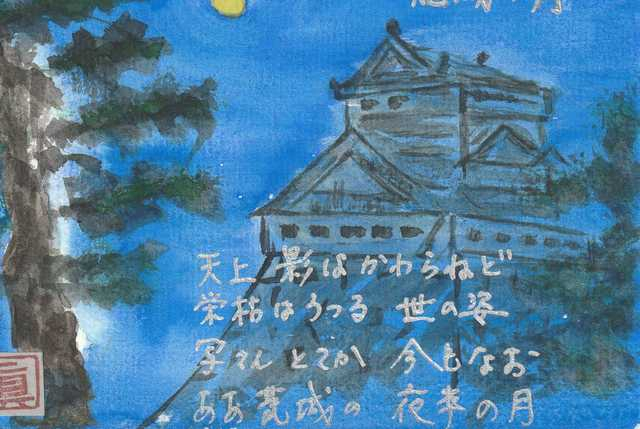 の月
天上影はかわらねど
栄枯はうつる 世の姿
写さんとてか 今もなお
ああ荒城の 夜半の月
眞